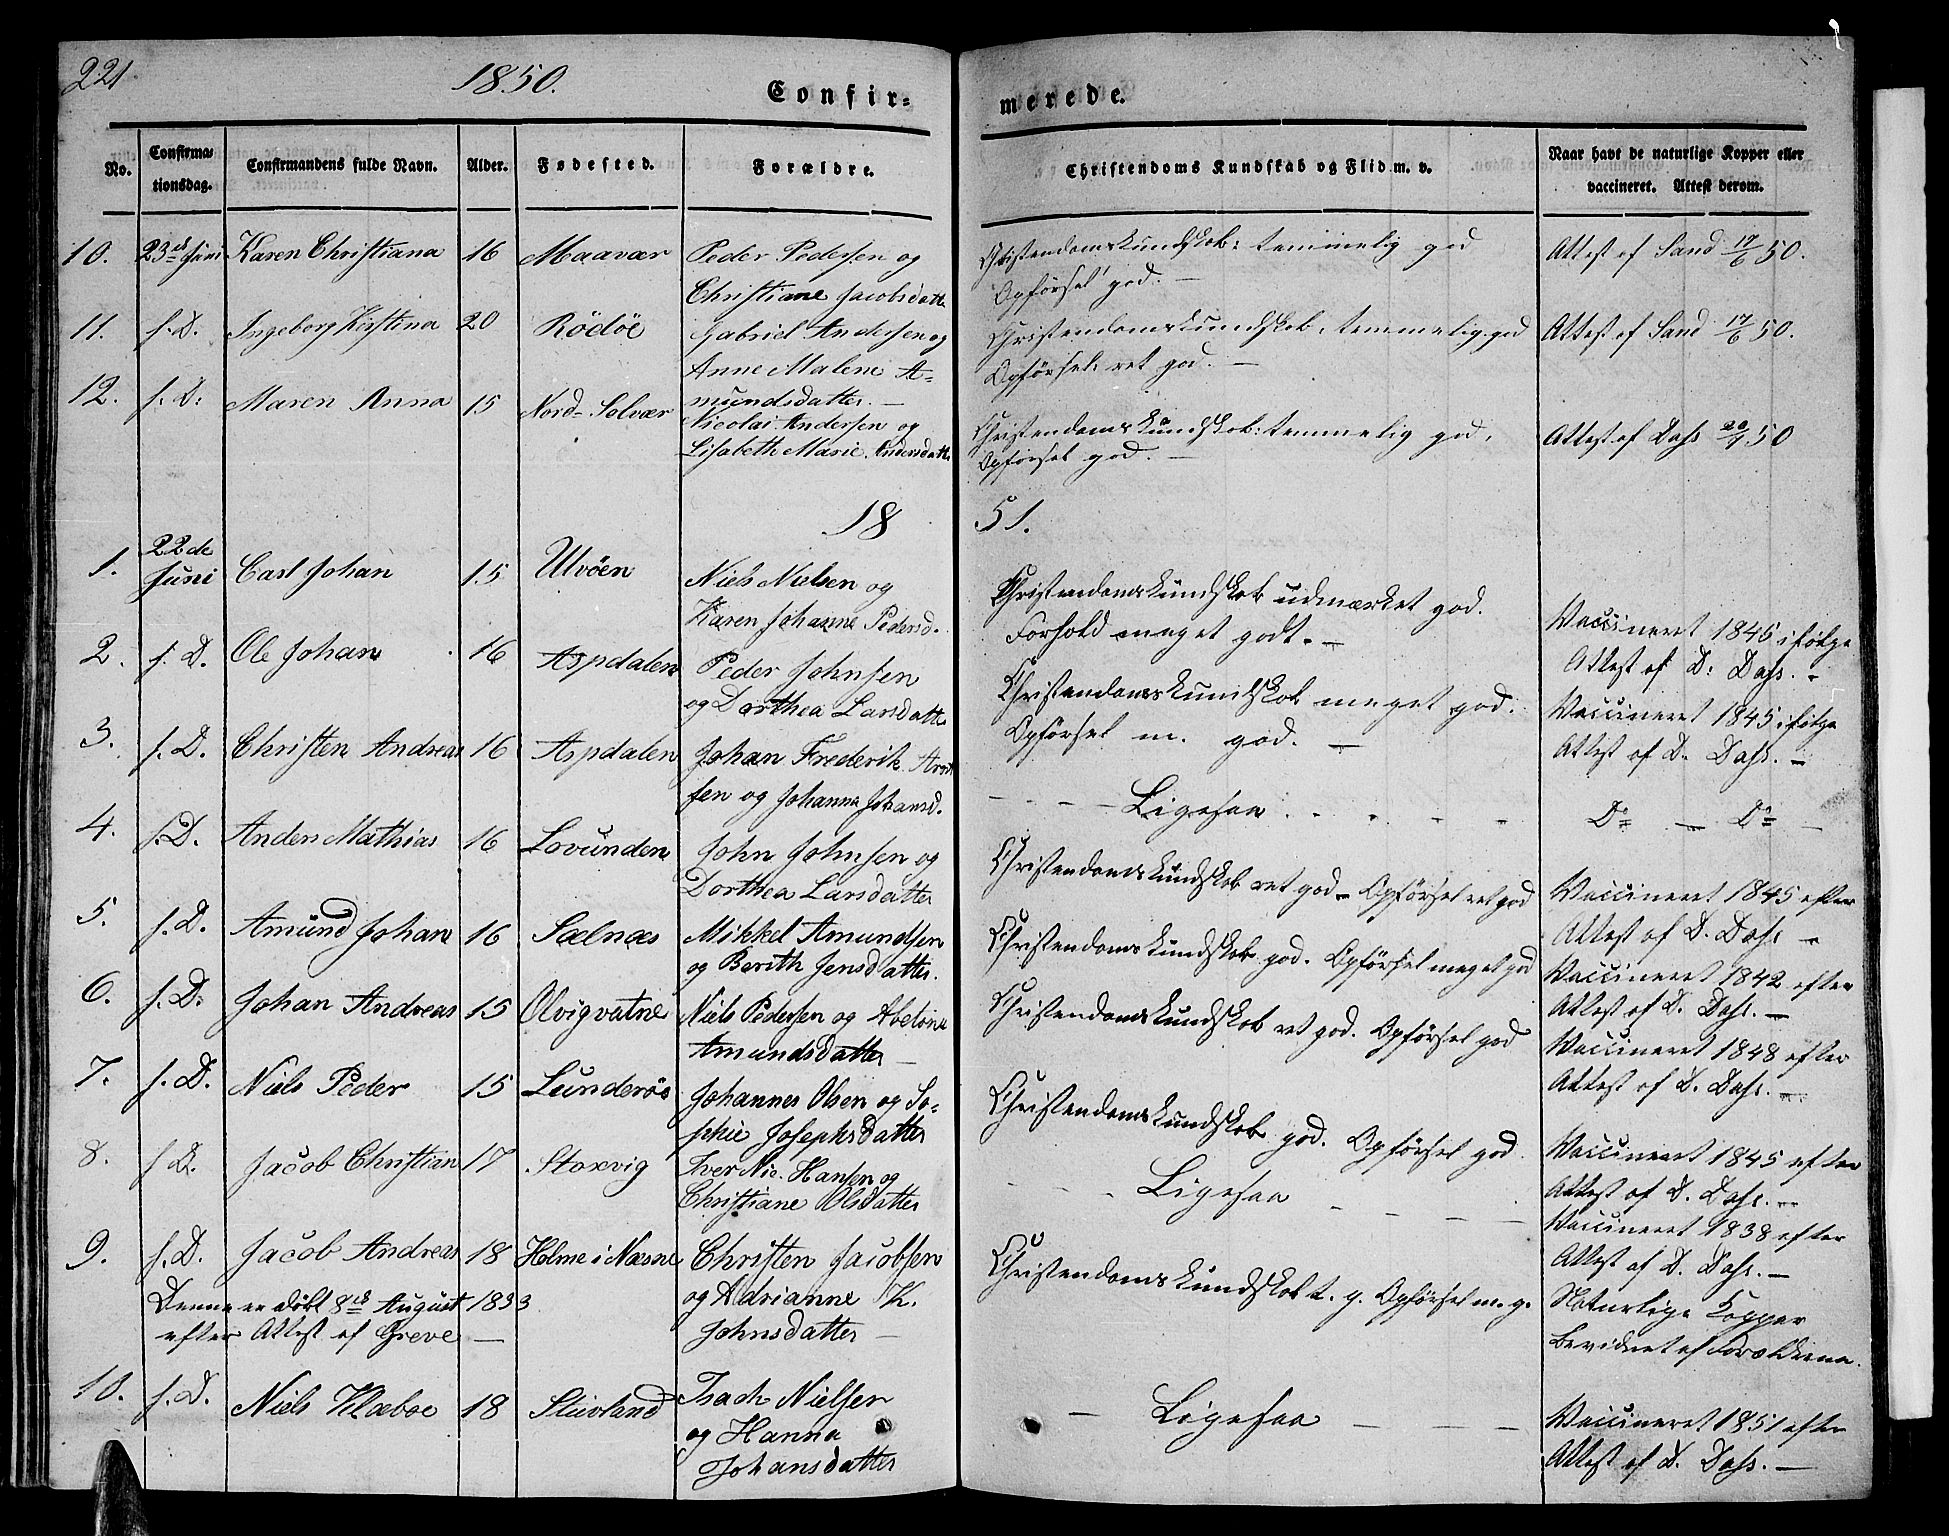 221
1850.
Confir-
merede.
No.
Confirma-
tionsdag.
Confirmandens fulde Navn.
Alder.
Fødested.
Forældre.
Christendoms Kundskab og Flid m. v.
Naar havt de naturlige Kopper eller
vaccineret. Attest derom.
10. 23de Juni Karen Christiana 16 Maavær Peder Pedersen og
Christiane Jacobsdatt.
Christendomskundskab: temmelig god
Opførsel god. —
Attest af Sand 17/6 50.
11. s. D. Ingeborg Kirstina 20 Rödöe Gabriel Andersen og
Anne Malene A-
mundsdatter. —
Christendomskundskab: temmelig god
Opførsel: ret god. —
Attest af Sand 17/6 50.
12. s. D: Maren Anna 15 Nord-Solvær Nicolai Andersen og
Lisabeth Marie Andersdatt.
Christendomskundskab: temmelig god,
Opførsel god. —
Attest af Dass 50
18 51.
1. 22de
Juni Carl Johan 15 Ulvöen Niels Nielsen og
Karen Johanne Pedersd.
Christendomskundskab udmærket god.
Forhold meget godt. —
Vaccineret 1845 ifølge
Attest af D: Dass. -
2. s. D. Ole Johan 16 Aspdalen Peder Johnsen
og Dorthea Larsdatter
Christendomskundskab meget god.
Opførsel m. god. —
Vaccineret 1845 ifølge
Attest af D. Dass. —
3. s. D. Christen Andreas 16 Aspdalen Johan Frederik
sen og Johanna Johansd.
- - - - Ligesaa . . . - - -
Do — Do —
4. s. D. Anden Mathias 16 Lovunden John Johnsen og
Dorthea Larsdatter
Christendomskundskab ret god - Opførsel ret god
Vaccineret 1845 efter
Attest af D. Dass —
5. s. D. Amünd Johan 16 Sælnæs Mikkel Amundsen
og Berith Jensdatter.
Christendomskundskab god. Opførsel meget god
Vaccineret 1842 efter
Attest af D. Dass. —
6. s. D: Johan Andreas 15 Olvigvatne Niels Pedersen og Abelone
Amundsdatter —
Christendomskundskab ret god. Opførsel god
Vaccineret 1848 efter
Attest af D. Dass. —
7. s. D. Niels Peder 15 Lunderös Johannes Olsen og So-
phie Josephsdatter
Christendomskundskab god. Opførsel god.
Vaccineret 1845 efter
Attest af D. Dass. —
8. s D. Jacob Christian 17 Storvig Iver Nic. Hansen og
Christiane Olsdatter
- - - Ligesaa - - - -
Vaccineret 1838 efter
Attest af D. Dass. —
9. s. D. Jacob Andreas 18 Holme i Næsne Christen Jacobsen
og Adrianne K.
Johnsdatter —
Denne er døbt 8de August 1833
efter Attest af Greve —
Christendomskundskab t. g. Opførsel m. g.
Naturlige Kopper
bevidnet af Forældrene.
10. s. D. Niels Klæboe 18 Stuvland Isach Nielsen
og Hanna
Johansdatter
— Ligesaa — — —
Vaccineret 1851 efter
Attest af D. Dass. —